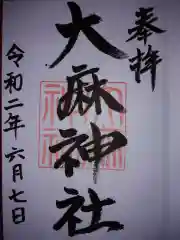 奉拝
大麻神社
令和二年六月七日